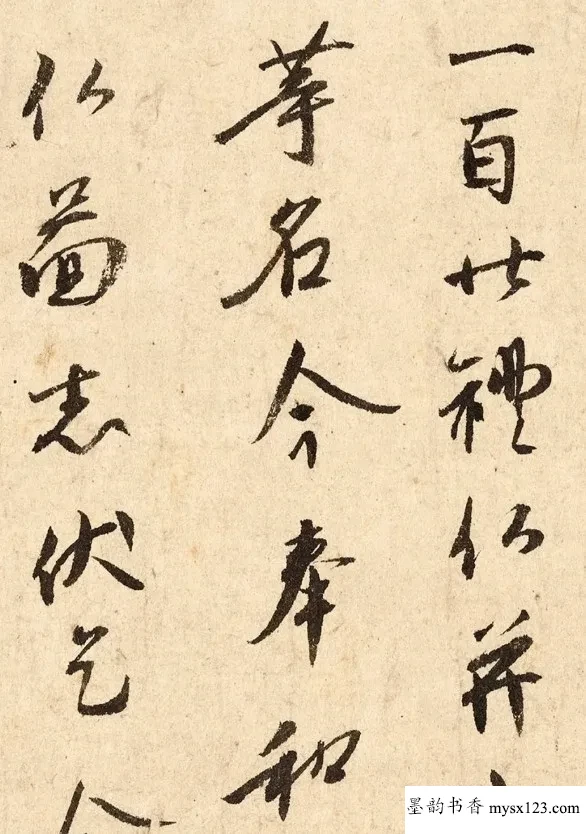 一百廿禮仏并
等名今奉和
仏圖者伏乞
墨韵书香 mysx123.com